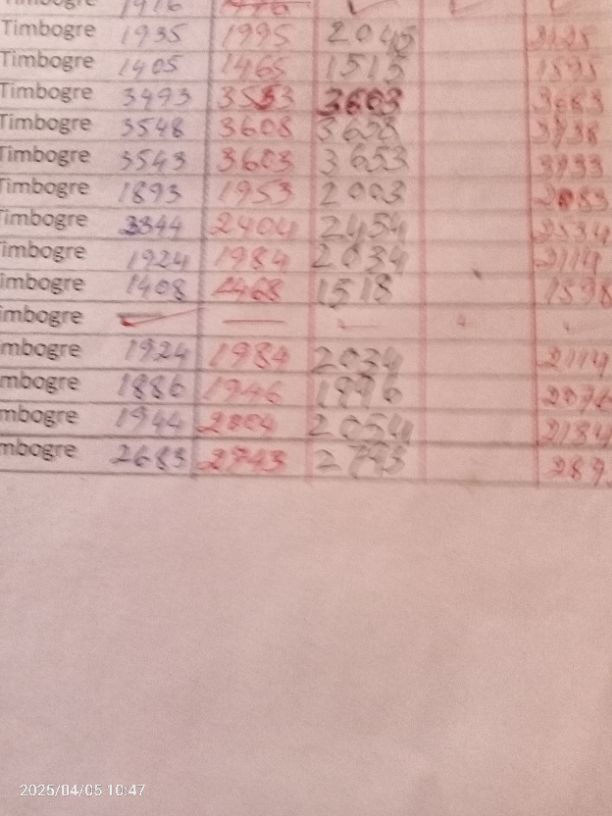 Timbogre 1935 1995 2045 2125
Timbogre 1405 1465 1515 1595
Timbogre 3493 3553 3603 3683
Timbogre 3548 3608 3658 3738
Timbogre 3543 3603 3653 3733
Timbogre 1893 1953 2003 2083
Timbogre 2404 2454 2534
imbogre 1924 1984 2034 2114
imbogre 1408 1468 1518 1598
imbogre
mbogre 1924 1984 2034 2114
mbogre 1886 1946 1996
mbogre 1944 2004 2054 2134
mbogre 2683 2743 2793
2025/04/05 10:47